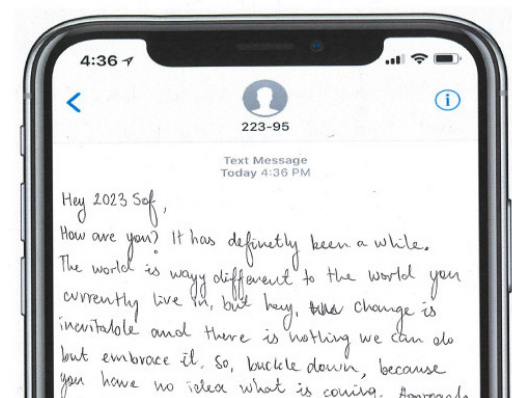 4:36
223-95
Text Message
Today 4:36 PM
Hey 2023 Sof,
How are you? It has definetly been a while.
The world is wayy different to the world you
currently live in, but hey, change is
inevitable and there is nothing we can do
but embrace it. So, buckle down, because
you have no idea what is coming.